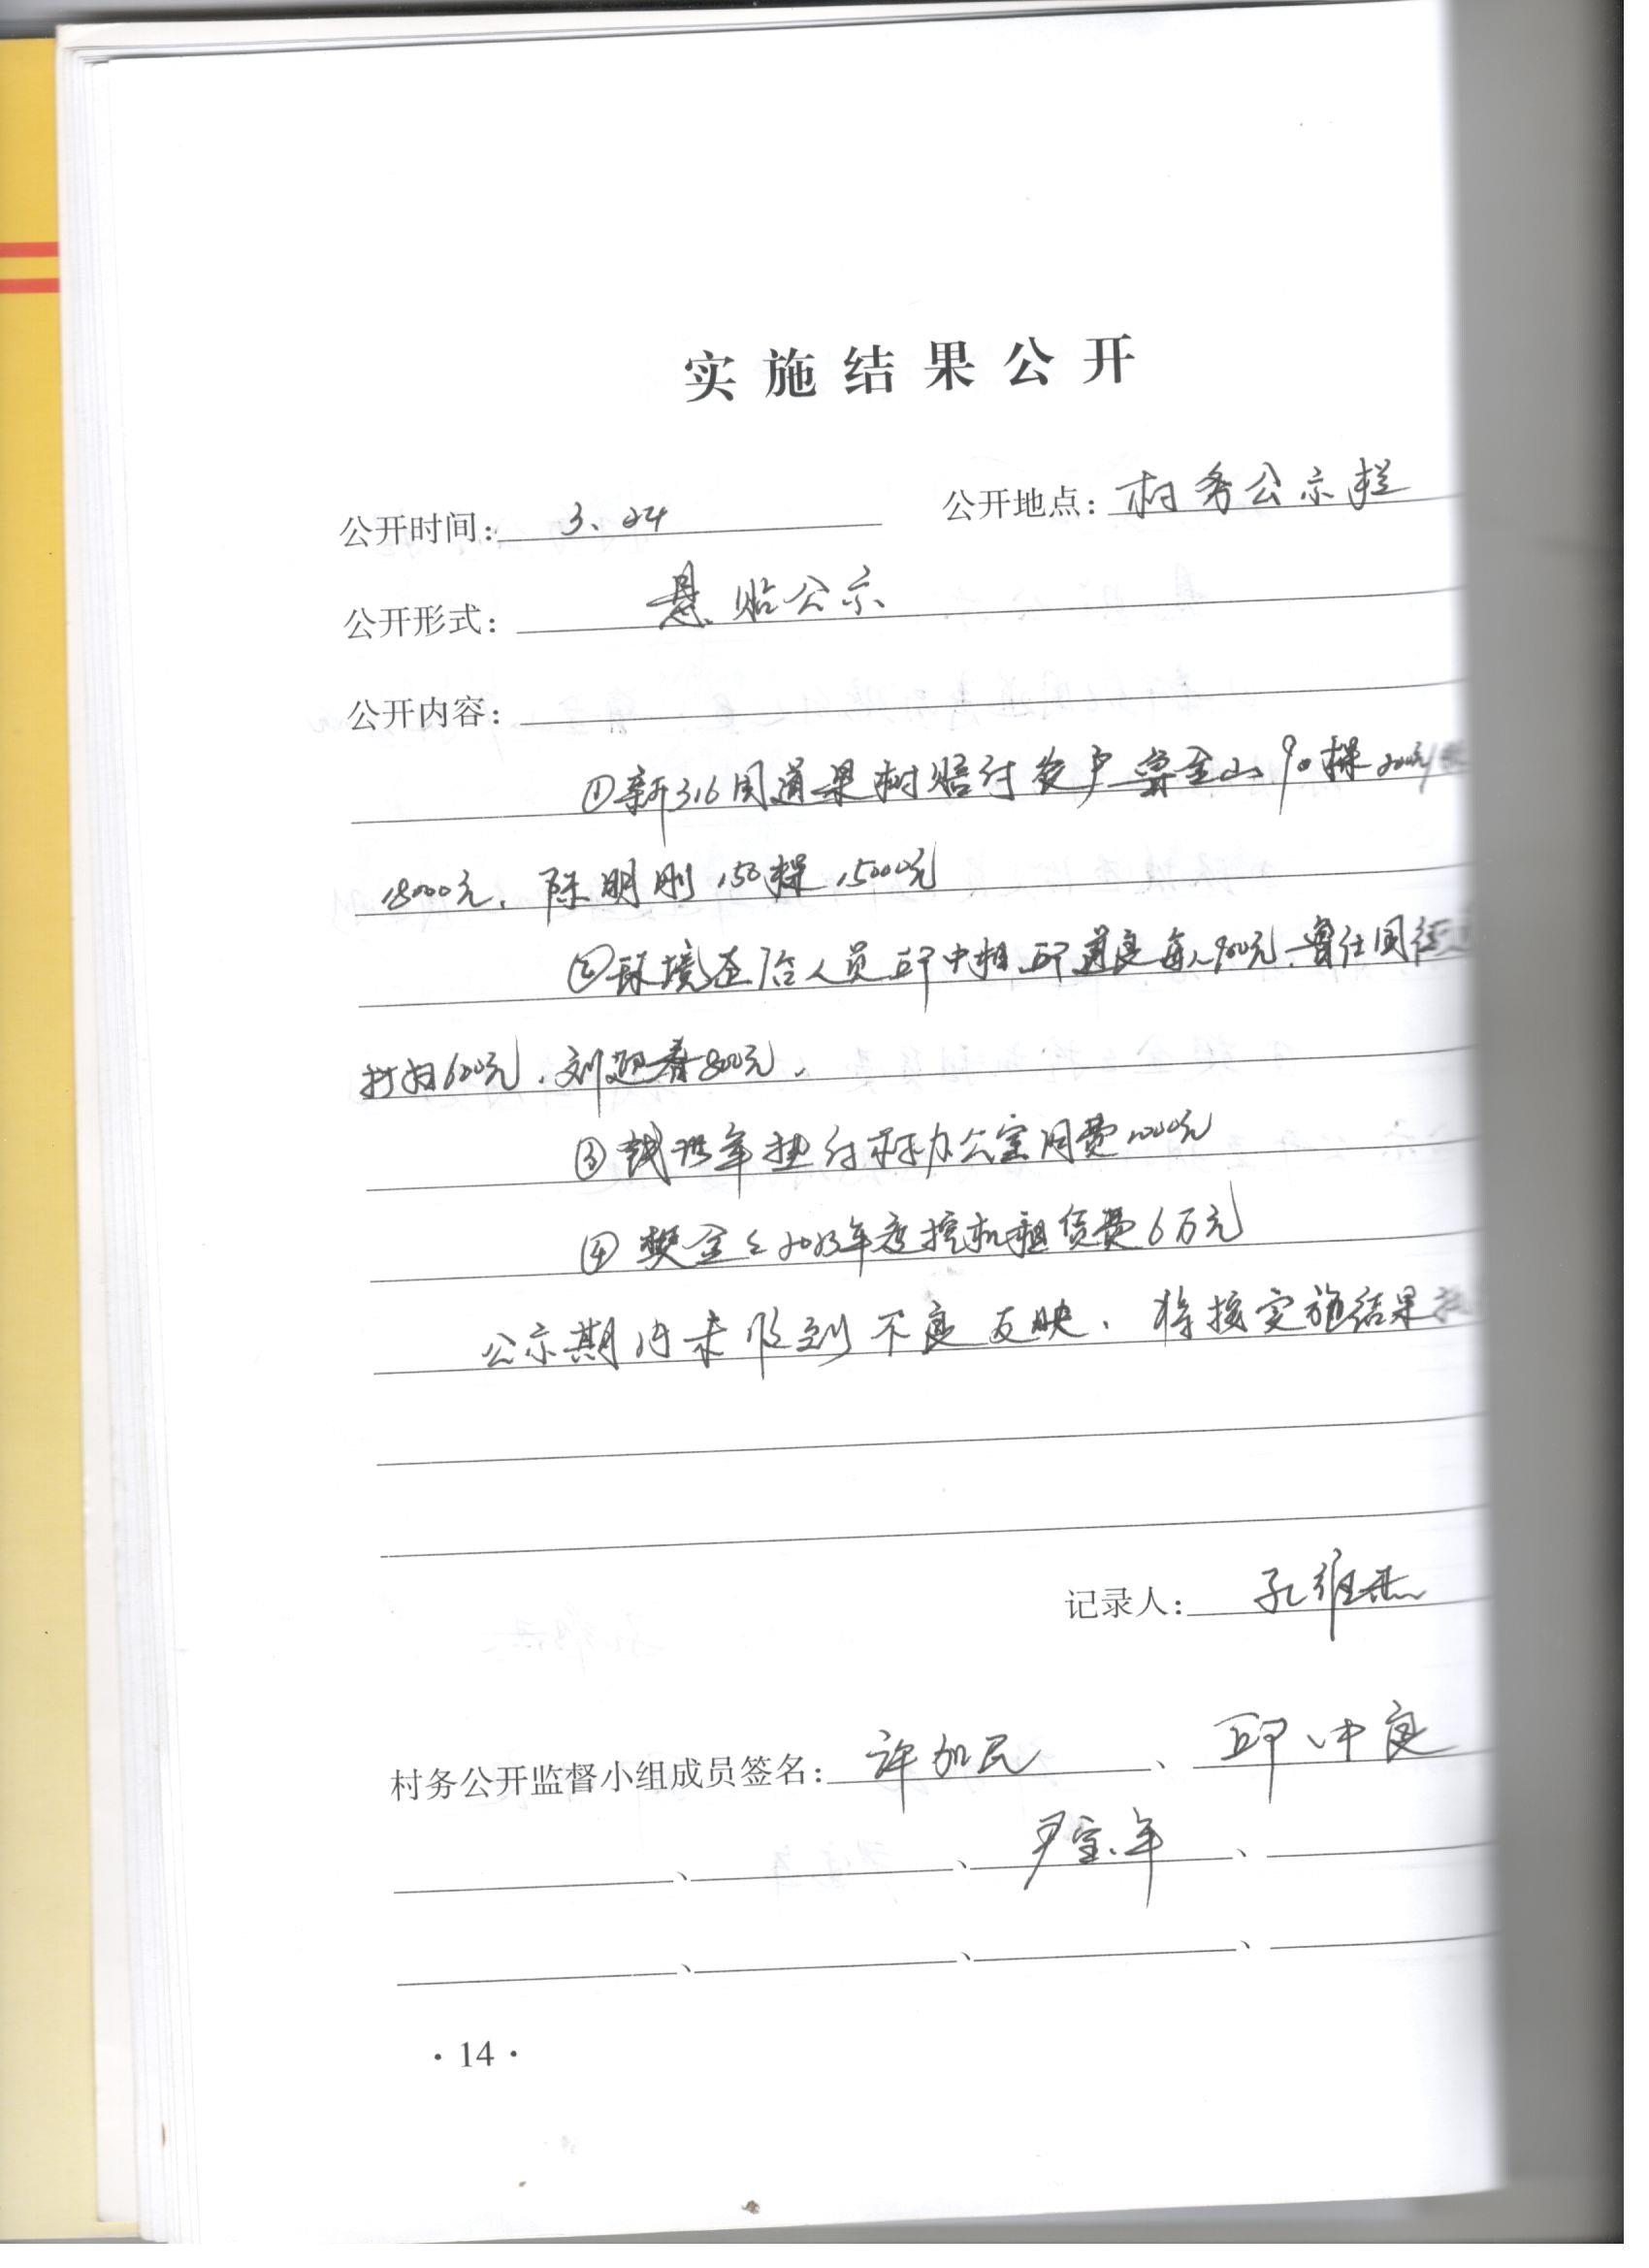 实施结果公开
公开时间: 3、24 公开地点: 村务公示栏
公开形式: 悬贴公示
公开内容:
①新316国道果树赔付农户 金山90棵200元/
18000元、陈明刚150棵15000元
②环境整治人员邱中相、邱道良每人900元、鲁仕国
打扫600元、刘迎春800元、
③钱 年垫付村办公室用费1000元
④樊金 2023年度挖机租赁费6万元
公示期内未收到不良反映、将按实施结果
记录人: 孔维杰
村务公开监督小组成员签名: 许加民、邱中良
、 、尹宝年、
、 、 、
·14·